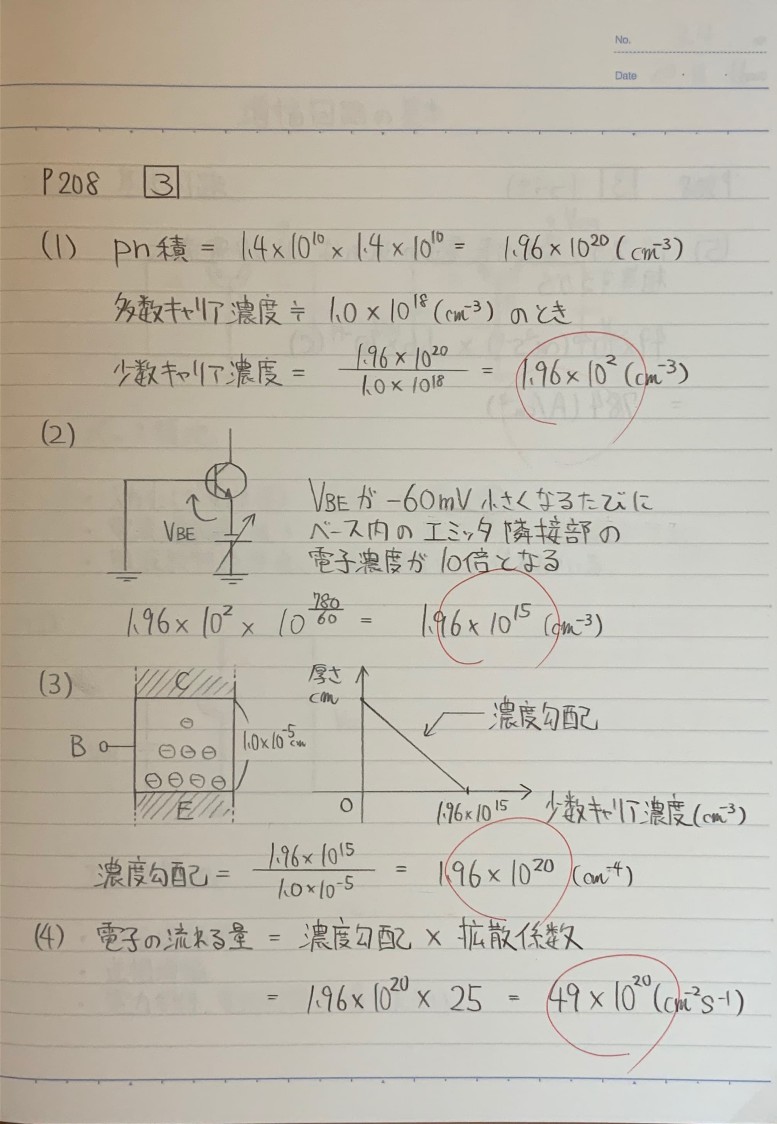 No.
Date
P208 3
(1) pn積 = 1.4×10¹⁰ × 1.4×10¹⁰ = 1.96×10²⁰ (cm⁻³)
多数キャリア濃度 ≒ 1.0×10¹⁸ (cm⁻³) のとき
少数キャリア濃度 = 1.96×10²⁰ / 1.0×10¹⁸ = 1.96×10² (cm⁻³)
(2)
VBE
VBEが -60mV 小さくなるたびに
ベース内のエミッタ隣接部の
電子濃度が 10倍となる
1.96×10² × 10^(780/60) = 1.96×10¹⁵ (cm⁻³)
(3)
C
B
E
1.0×10⁻⁵cm
厚さ
cm
濃度勾配
0
1.96×10¹⁵
少数キャリア濃度(cm⁻³)
濃度勾配 = 1.96×10¹⁵ / 1.0×10⁻⁵ = 1.96×10²⁰ (cm⁻⁴)
(4) 電子の流れる量 = 濃度勾配 × 拡散係数
= 1.96×10²⁰ × 25 = 49×10²⁰ (cm⁻²s⁻¹)